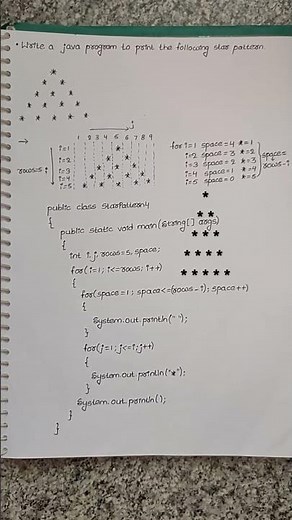 • Write a java program to print the following star pattern.
*
* *
* * *
* * * *
* * * * *
→ j
1 2 3 4 5 6 7 8 9
i=1 *
i=2 * *
rows=5 i i=3 * * *
i=4 * * * *
i=5 * * * * *
for i=1 space=4 *=1
i=2 space=3 *=2
i=3 space=2 *=3
i=4 space=1 *=4
i=5 space=0 *=5
space=
rows-i
★
★ ★
★ ★ ★
★ ★ ★ ★
★ ★ ★ ★ ★
public class StarPattern4
{
public static void main(String[] args)
{
int i,j, rows=5, space;
for(i=1; i<=rows; i++)
{
for(space=1; space<=(rows-i); space++)
{
System.out.println(" ");
}
for(j=1; j<=i; j++)
{
System.out.println("*");
}
System.out.println();
}
}